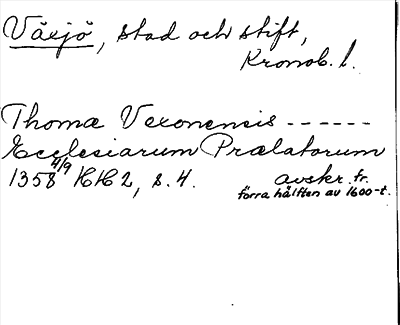 Växjö, stad och stift,
Kronob. l.
Thomæ Vexonensis ------
Ecclesiarum Prælatorum
1358 4/9 HH 2, s. 4. avskr. fr.
förra hälften av 1600-t.